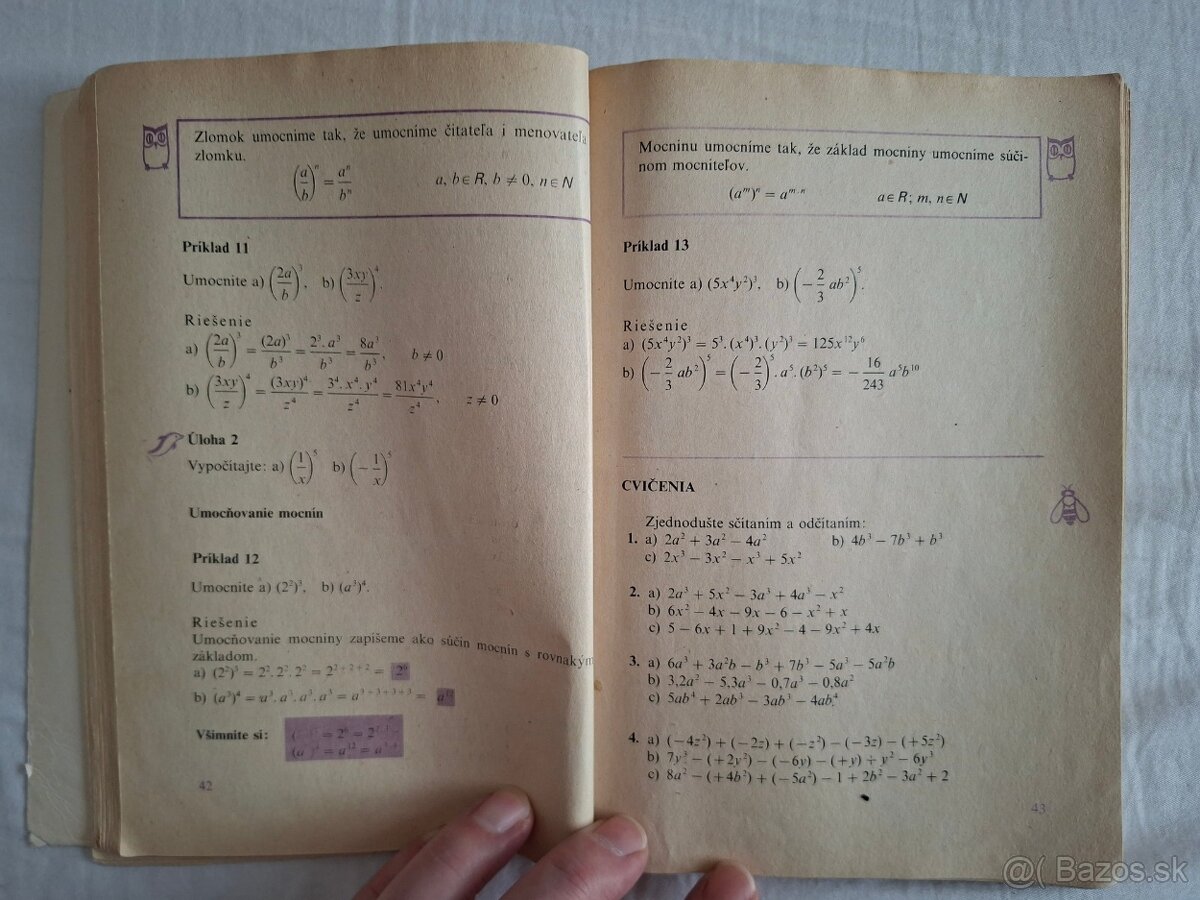 Zlomok umocníme tak, že umocníme čitateľa i menovateľa
zlomku.
(a/b)ⁿ = aⁿ/bⁿ a, b ∈ R, b ≠ 0, n ∈ N
Príklad 11
Umocnite a) (2a/b)³, b) (3xy/z)⁴.
Riešenie
a) (2a/b)³ = (2a)³/b³ = 2³.a³/b³ = 8a³/b³, b ≠ 0
b) (3xy/z)⁴ = (3xy)⁴/z⁴ = 3⁴.x⁴.y⁴/z⁴ = 81x⁴y⁴/z⁴, z ≠ 0
Úloha 2
Vypočítajte: a) (1/x)⁵ b) (−1/x)⁵
Umocňovanie mocnín
Príklad 12
Umocnite a) (2²)³, b) (a³)⁴.
Riešenie
Umocňovanie mocniny zapíšeme ako súčin mocnín s rovnakým
základom.
a) (2²)³ = 2².2².2² = 2²⁺²⁺² = 2⁶
b) (a³)⁴ = a³.a³.a³.a³ = a³⁺³⁺³⁺³ = a¹²
Všimnite si:
= 2⁶ =
= a¹² =
42
Mocninu umocníme tak, že základ mocniny umocníme súči-
nom mocniteľov.
(aᵐ)ⁿ = aᵐ·ⁿ a ∈ R; m, n ∈ N
Príklad 13
Umocnite a) (5x⁴y²)³, b) (−2/3 ab²)⁵.
Riešenie
a) (5x⁴y²)³ = 5³.(x⁴)³.(y²)³ = 125x¹²y⁶
b) (−2/3 ab²)⁵ = (−2/3)⁵.a⁵.(b²)⁵ = −16/243 a⁵b¹⁰
CVIČENIA
Zjednodušte sčítaním a odčítaním:
1. a) 2a² + 3a² − 4a² b) 4b³ − 7b³ + b³
c) 2x³ − 3x² − x³ + 5x²
2. a) 2a³ + 5x² − 3a³ + 4a³ − x²
b) 6x² − 4x − 9x − 6 − x² + x
c) 5 − 6x + 1 + 9x² − 4 − 9x² + 4x
3. a) 6a³ + 3a²b − b³ + 7b³ − 5a³ − 5a²b
b) 3,2a² − 5,3a³ − 0,7a³ − 0,8a²
c) 5ab⁴ + 2ab³ − 3ab³ − 4ab⁴
4. a) (−4z²) + (−2z) + (−z²) − (−3z) − (+5z²)
b) 7y³ − (+2y²) − (−6y) − (+y) + y² − 6y³
c) 8a² − (+4b²) + (−5a²) − 1 + 2b² − 3a² + 2
43
@( Bazos.sk